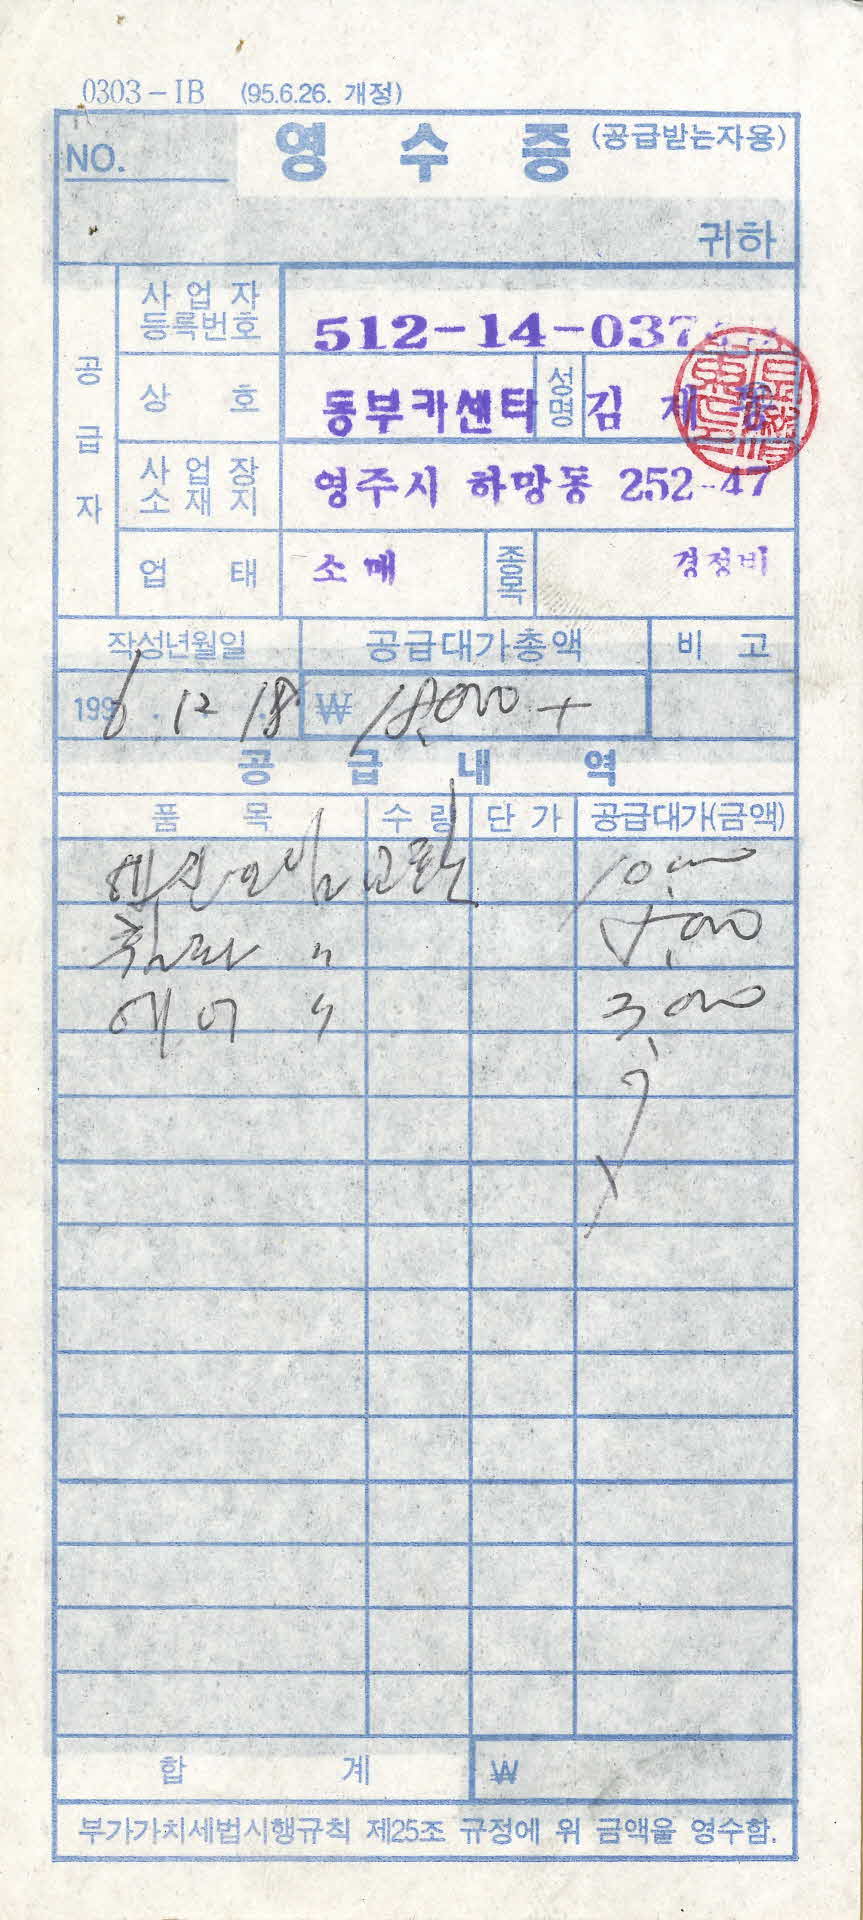 0303-IB (95.6.26. 개정)
NO. 영 수 증 (공급받는자용)
귀하
공급자
사업자등록번호 512-14-037
상호 동부카센타 성명 김재
사업장소재지 영주시 하망동 252-47
업태 소매 종목 경정비
작성년월일 공급대가총액 비고
1996. 12. 18. ₩ 18,000 +
공급내역
품목 수량 단가 공급대가(금액)
엔진오일 교환 10,000
휠타 〃 5,000
에어 〃 3,000
합계 ₩
부가가치세법시행규칙 제25조 규정에 위 금액을 영수함.